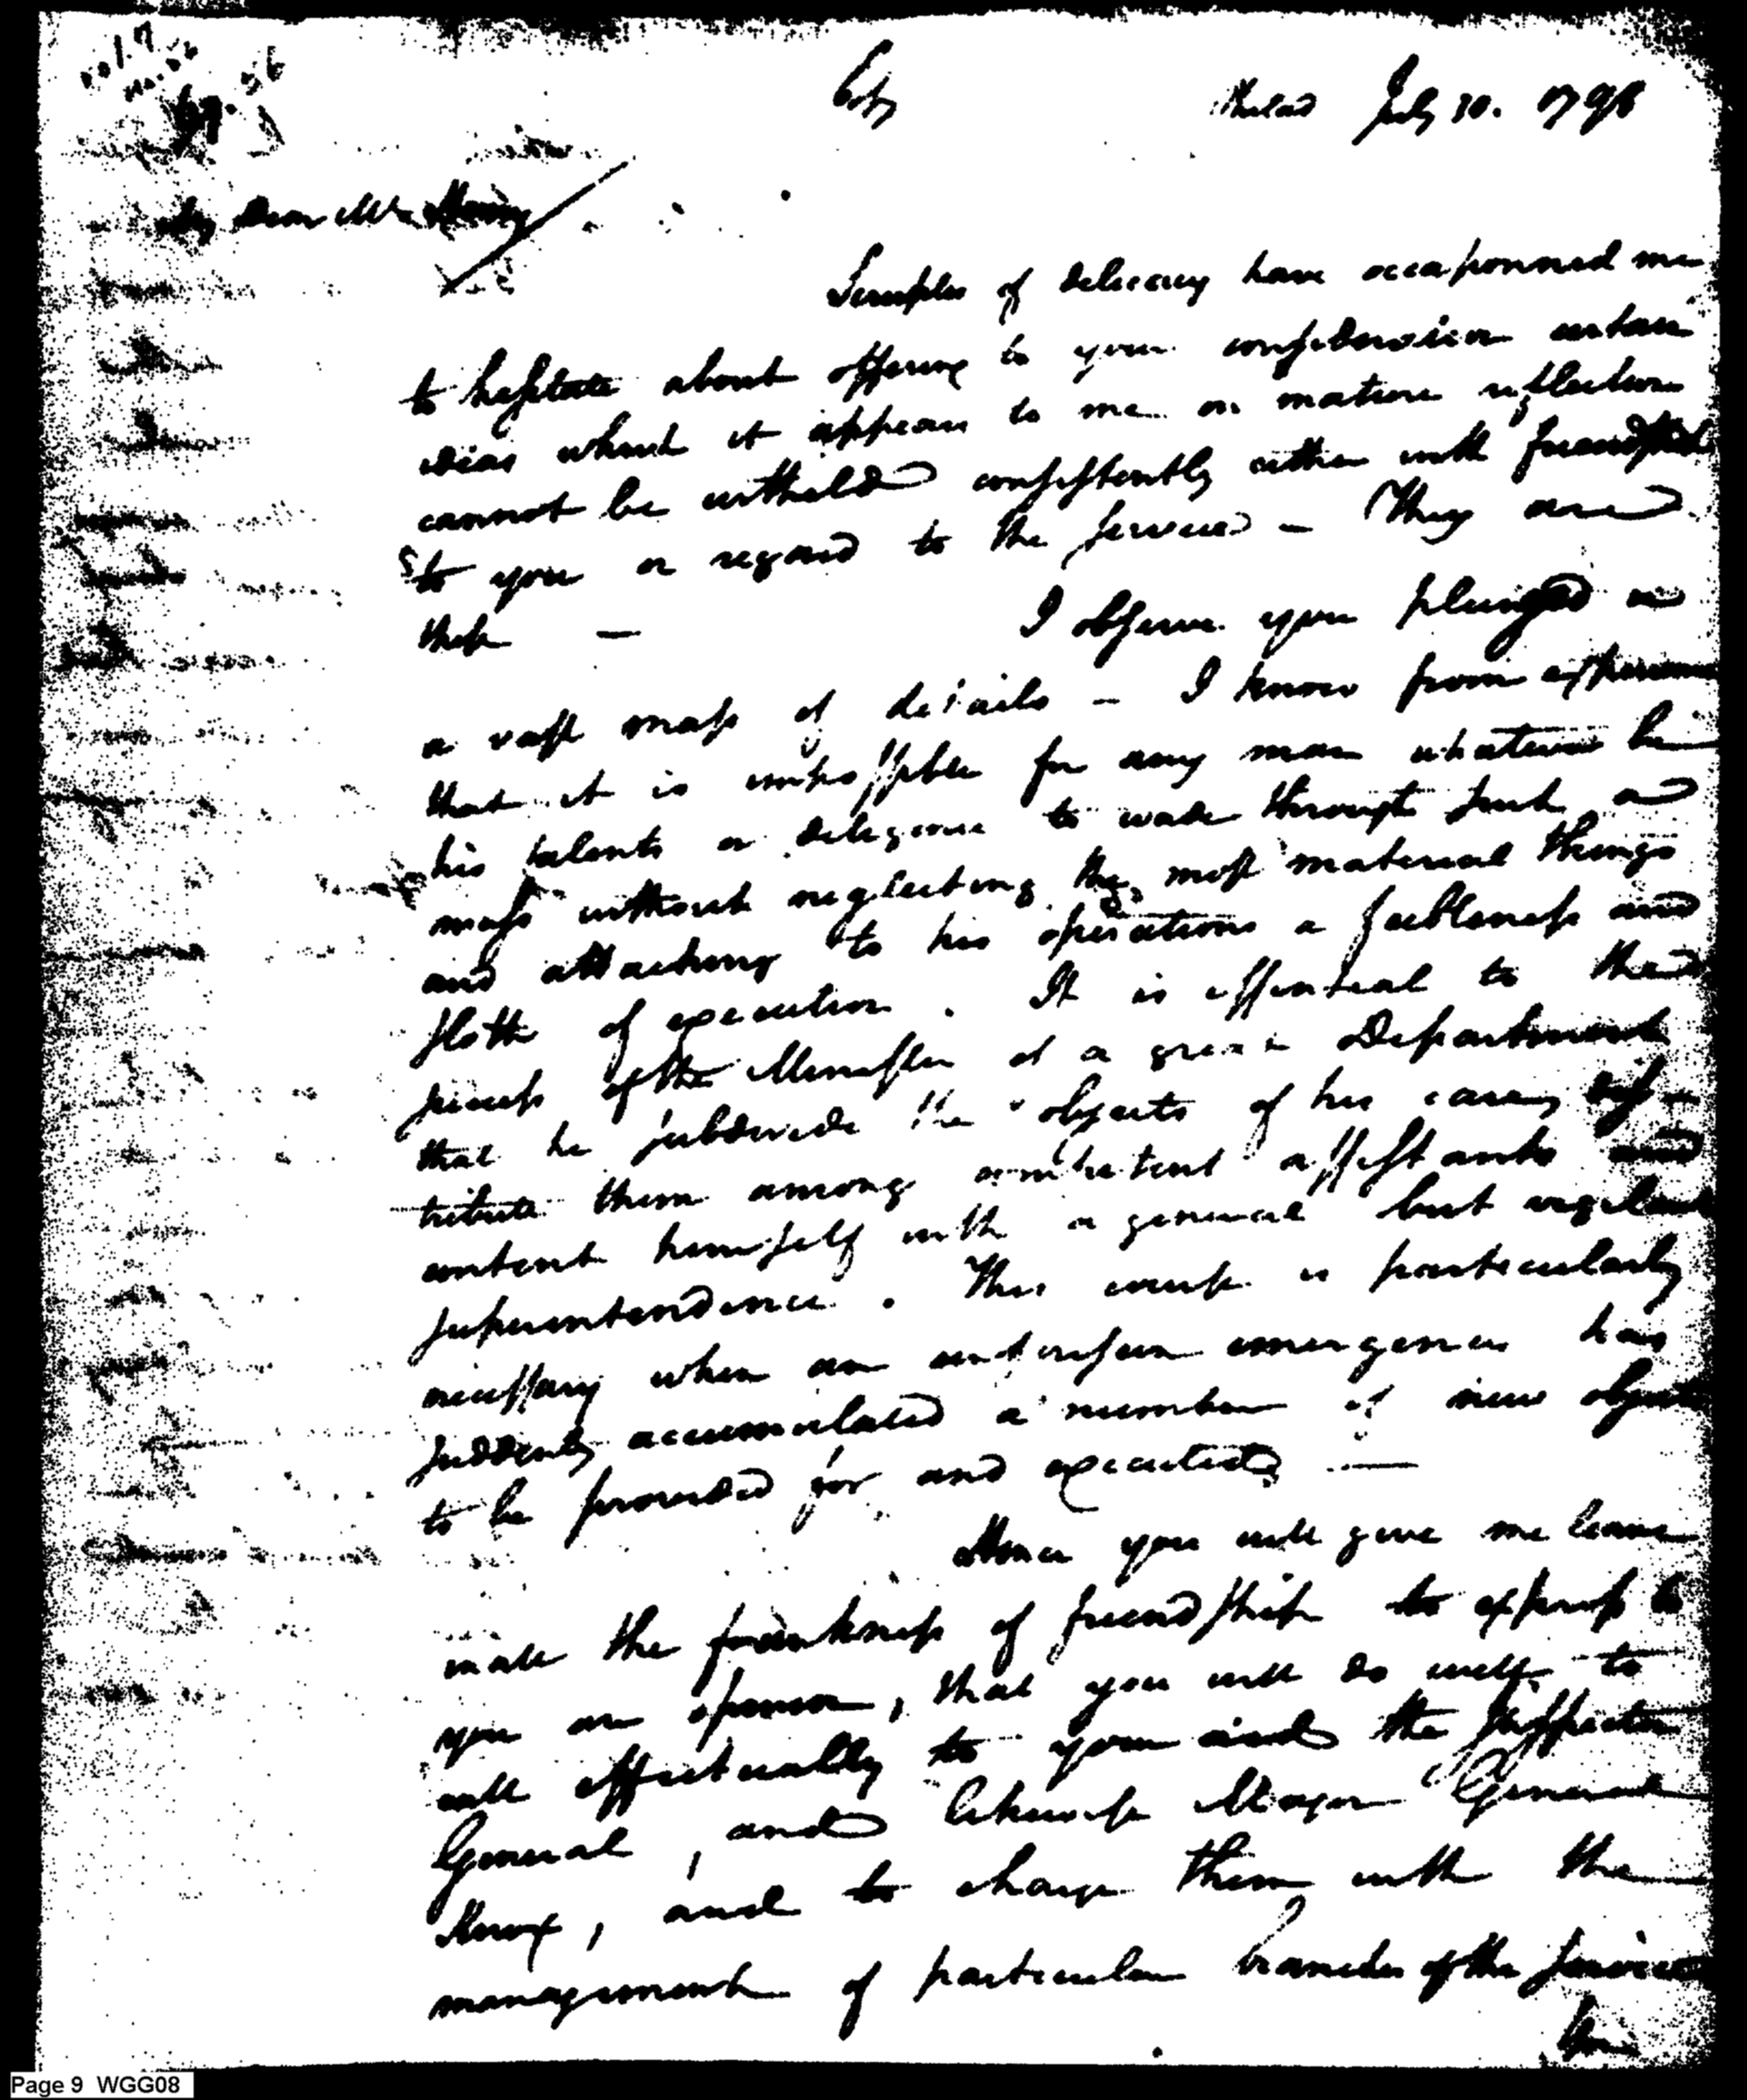 vol. 7
no. 56
Copy
Philad July 30. 1798
My Dear Mr. McHenry
Scruples of delicacy have occasionned me
to hesitate about offering to your consideration certain
ideas which it appears to me on mature reflection
cannot be witheld consistently either with friendship
to you or regard to the service — They are
these —
I observe you plunged in
a vast mass of details — I know from experience
that it is impossible for any man whatever be
his talents or diligence to wade through such a
mass without neglecting the most material things
and attaching to his operations a feebleness and
sloth of execution. It is essential to the
success of the Minister of a great Department
that he subdivide the objects of his care, dis-
tribute them among competent assistants and
content himself with a general but vigilant
superintendence. This course is particularly
necessary when an unforseen emergence has
suddenly accumulated a number of new objects
to be provided for and executed —
Hence you will give me leave
in all the frankness of friendship to express to
you an opinion, that you will do well to
call effectually to your aid the Inspector
General, and likewise Major General
Knox, and to charge them with the
management of particular branches of the service
Page 9 WGG08